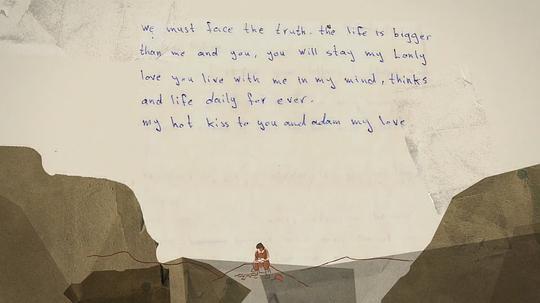 we must face the truth. the life is bigger
than me and you, you will stay my Lonly
love you live with me in my mind, thinks
and life daily for ever.
my hot kiss to you and adam my love